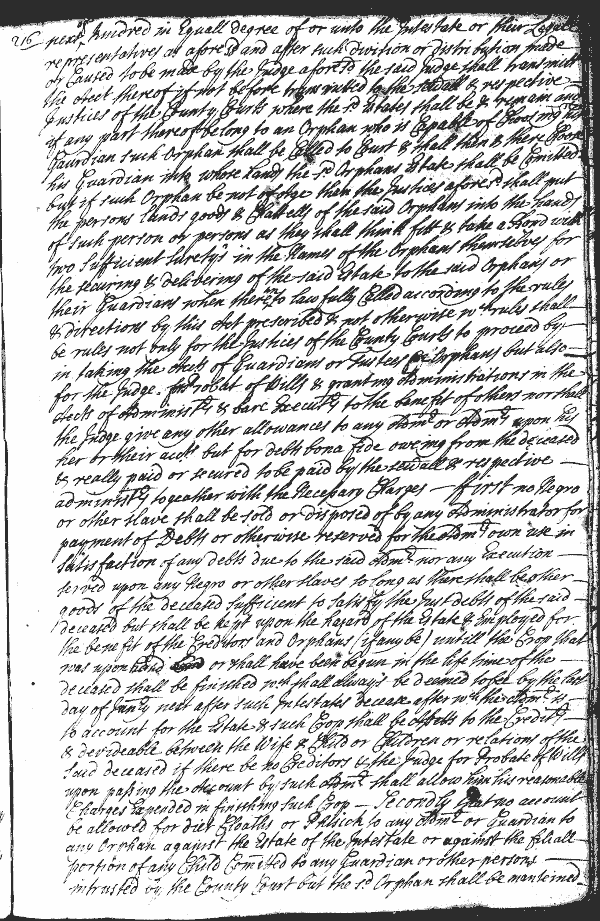 216 next of Kindred in Equall degree of or unto the Intestate or their Legall
representatives as aforesd and after such division or distribution made
or Caused to be made by the Judge aforesd the said Judge shall transmitt
the Acct thereof if not before transmitted to the sevall & respective
Justices of the County Courts where the sd Estates shall be & remain and
if any part thereof belong to an Orphan who is Capable of Choosing his
Gaurdian such Orphan shall be Called to Court & shall then & there Choose
his Guardian into whose hands the sd Orphans Estate shall be Comitted
but if such Orphan be not of age then the Justices aforesd shall put
the persons Lands goods & Chattells of the said Orphans into the hands
of such person or persons as they shall think fitt & take a bond with
two Sufficient Suretys in the Names of the Orphans themselves for
the securing & delivering of the said Estate to the said Orphans or
their Guardians when thereunto lawfully Called according to the rules
& directions by this Act prescribed & not otherwise wch rules shall
be rules not only for the Justices of the County Courts to proceed by
in taking the Accts of Guardians or Trustees orphans but also
for the Judge for Probat of Wills & granting Administrations in the
Accts of Administrs & bare Executrs to the benefit of others nor shall
the Judge give any other allowances to any Admr or Admrs upon his
her or their accts but for debts bona fide oweing from the deceased
& really paid or secured to be paid by the sevall & respective
administrs togeather with the Necessary Charges — First no Negro
or other slave shall be sold or disposed of by any Administrator for
payment of Debts or otherwise reserved for the Admrs own use in
Satisfaction of any debts due to the said Admrs nor any Execution
served upon any Negro or other slaves so long as there shall be other
goods of the deceased sufficient to satisfy the Just debts of the said
deceased but shall be kept upon the hazard of the Estate & imployed for
the benefit of the Creditors and Orphans (if any be) untill the Crop that
was upon hand or shall have been begun in the life time of the
deceased shall be finished wch shall always be deemed to be by the last
day of Janry next after such Intestates decease after wch the Admr is
to account for the Estate & such Crop shall be Assetts to the Creditrs
& devideable between the Wife & Child or Children or relations of the
said deceased if there be no Creditors & the Judge for Probate of Wills
upon passing the Account by such Admr shall allow him his reasonable
Charges Expended in finishing such Crop — Secondly that no account
be allowed for diet Cloaths or Phisick to any Admr or Guardian to
any Orphan against the Estate of the Intestate or against the filiall
portion of any Child Comitted to any Guardian or other persons
intrusted by the County Court but the sd Orphan shall be mantained